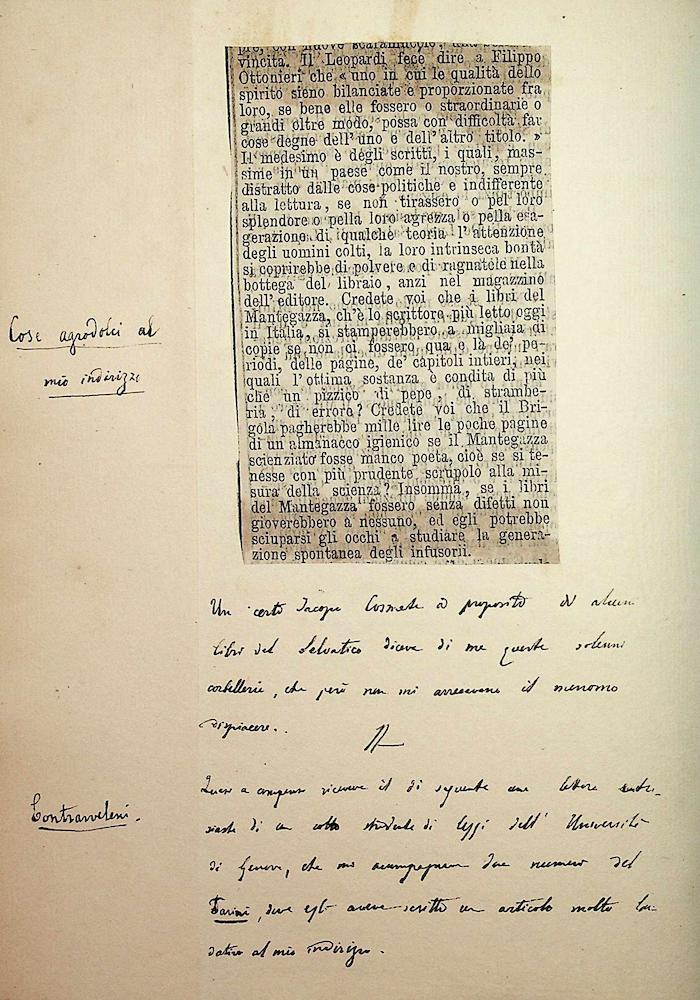 pre, con nuove scaramuccie, una
vincita. Il Leopardi fece dire a Filippo
Ottonieri che « uno in cui le qualità dello
spirito sieno bilanciate e proporzionate fra
loro, se bene elle fossero o straordinarie o
grandi oltre modo, possa con difficoltà far
cose degne dell' uno e dell' altro titolo. »
Il medesimo è degli scritti, i quali, mas-
sime in un paese come il nostro, sempre
distratto dalle cose politiche e indifferente
alla lettura, se non tirassero o pel loro
splendore o pella loro agrezza o pella esa-
gerazione di qualche teoria l' attenzione
degli uomini colti, la loro intrinseca bontà
si coprirebbe di polvere e di ragnatele nella
bottega del libraio, anzi nel magazzino
dell' editore. Credete voi che i libri del
Mantegazza, ch'è lo scrittore più letto oggi
in Italia, si stamperebbero a migliaia di
copie se non ci fossero qua e là de' pe-
riodi, delle pagine, de' capitoli intieri, nei
quali l' ottima sostanza è condita di più
che un pizzico di pepe, di strambe-
ria, di errore? Credete voi che il Bri-
gola pagherebbe mille lire le poche pagine
di un almanacco igienico se il Mantegazza
scienziato fosse manco poeta, cioè se si te-
nesse con più prudente scrupolo alla mi-
sura della scienza? Insomma, se i libri
del Mantegazza fossero senza difetti non
gioverebbero a nessuno, ed egli potrebbe
sciuparsi gli occhi a studiare la genera-
zione spontanea degli infusorii.
Cose agrodolci al
mio indirizzo
Un certo Jacopo Cosmate a proposito di alcuni
libri del Selvatico diceva di me queste solenni
corbellerie, che però non mi arrecavano il menomo
dispiacere..
Contravveleni.
Quasi a compenso riceveva il dì seguente una lettera entu-
siasta di un colto studente di leggi dell' Università
di Genova, che mi accompagnava due numeri del
Farini, dove egli aveva scritto un articolo molto lau-
dativo al mio indirizzo.